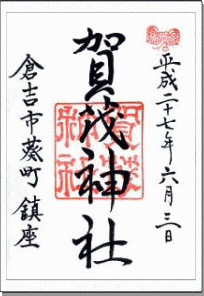 平成二十七年六月三日
賀茂神社
倉吉市葵町鎮座
賀茂
神社